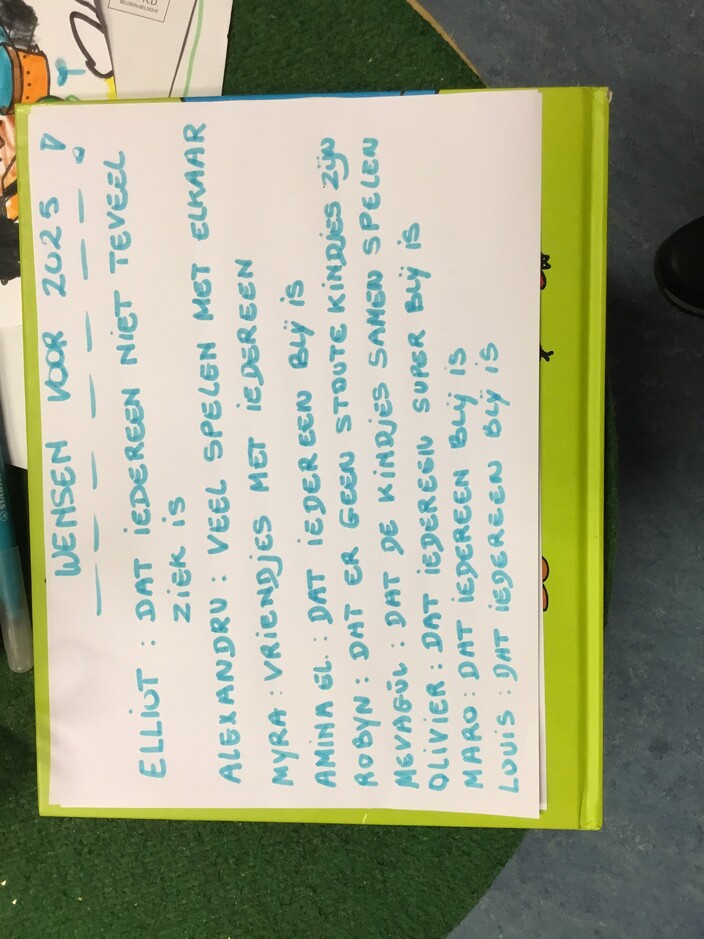 WENSEN VOOR 2025 !
ELLIOT : DAT IEDEREEN NIET TEVEEL
ZIEK IS
ALEXANDRU : VEEL SPELEN MET ELKAAR
MYRA : VRIENDJES MET IEDEREEN
AMINA EL. : DAT IEDEREEN BLIJ IS
ROBYN : DAT ER GEEN STOUTE KINDJES ZIJN
MEVAGÜL : DAT DE KINDJES SAMEN SPELEN
OLIVIER : DAT IEDEREEN SUPER BLIJ IS
MARO : DAT IEDEREEN BLIJ IS
LOUIS : DAT IEDEREEN BLIJ IS